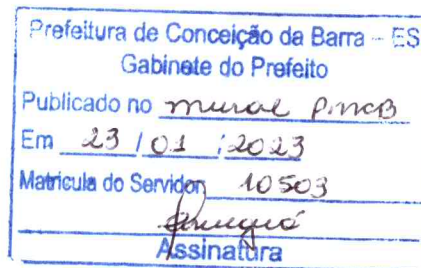 Prefeitura de Conceição da Barra - ES
Gabinete do Prefeito
Publicado no mural PMCB
Em 23 / 01 / 2023
Matricula do Servidor 10503
Assinatura